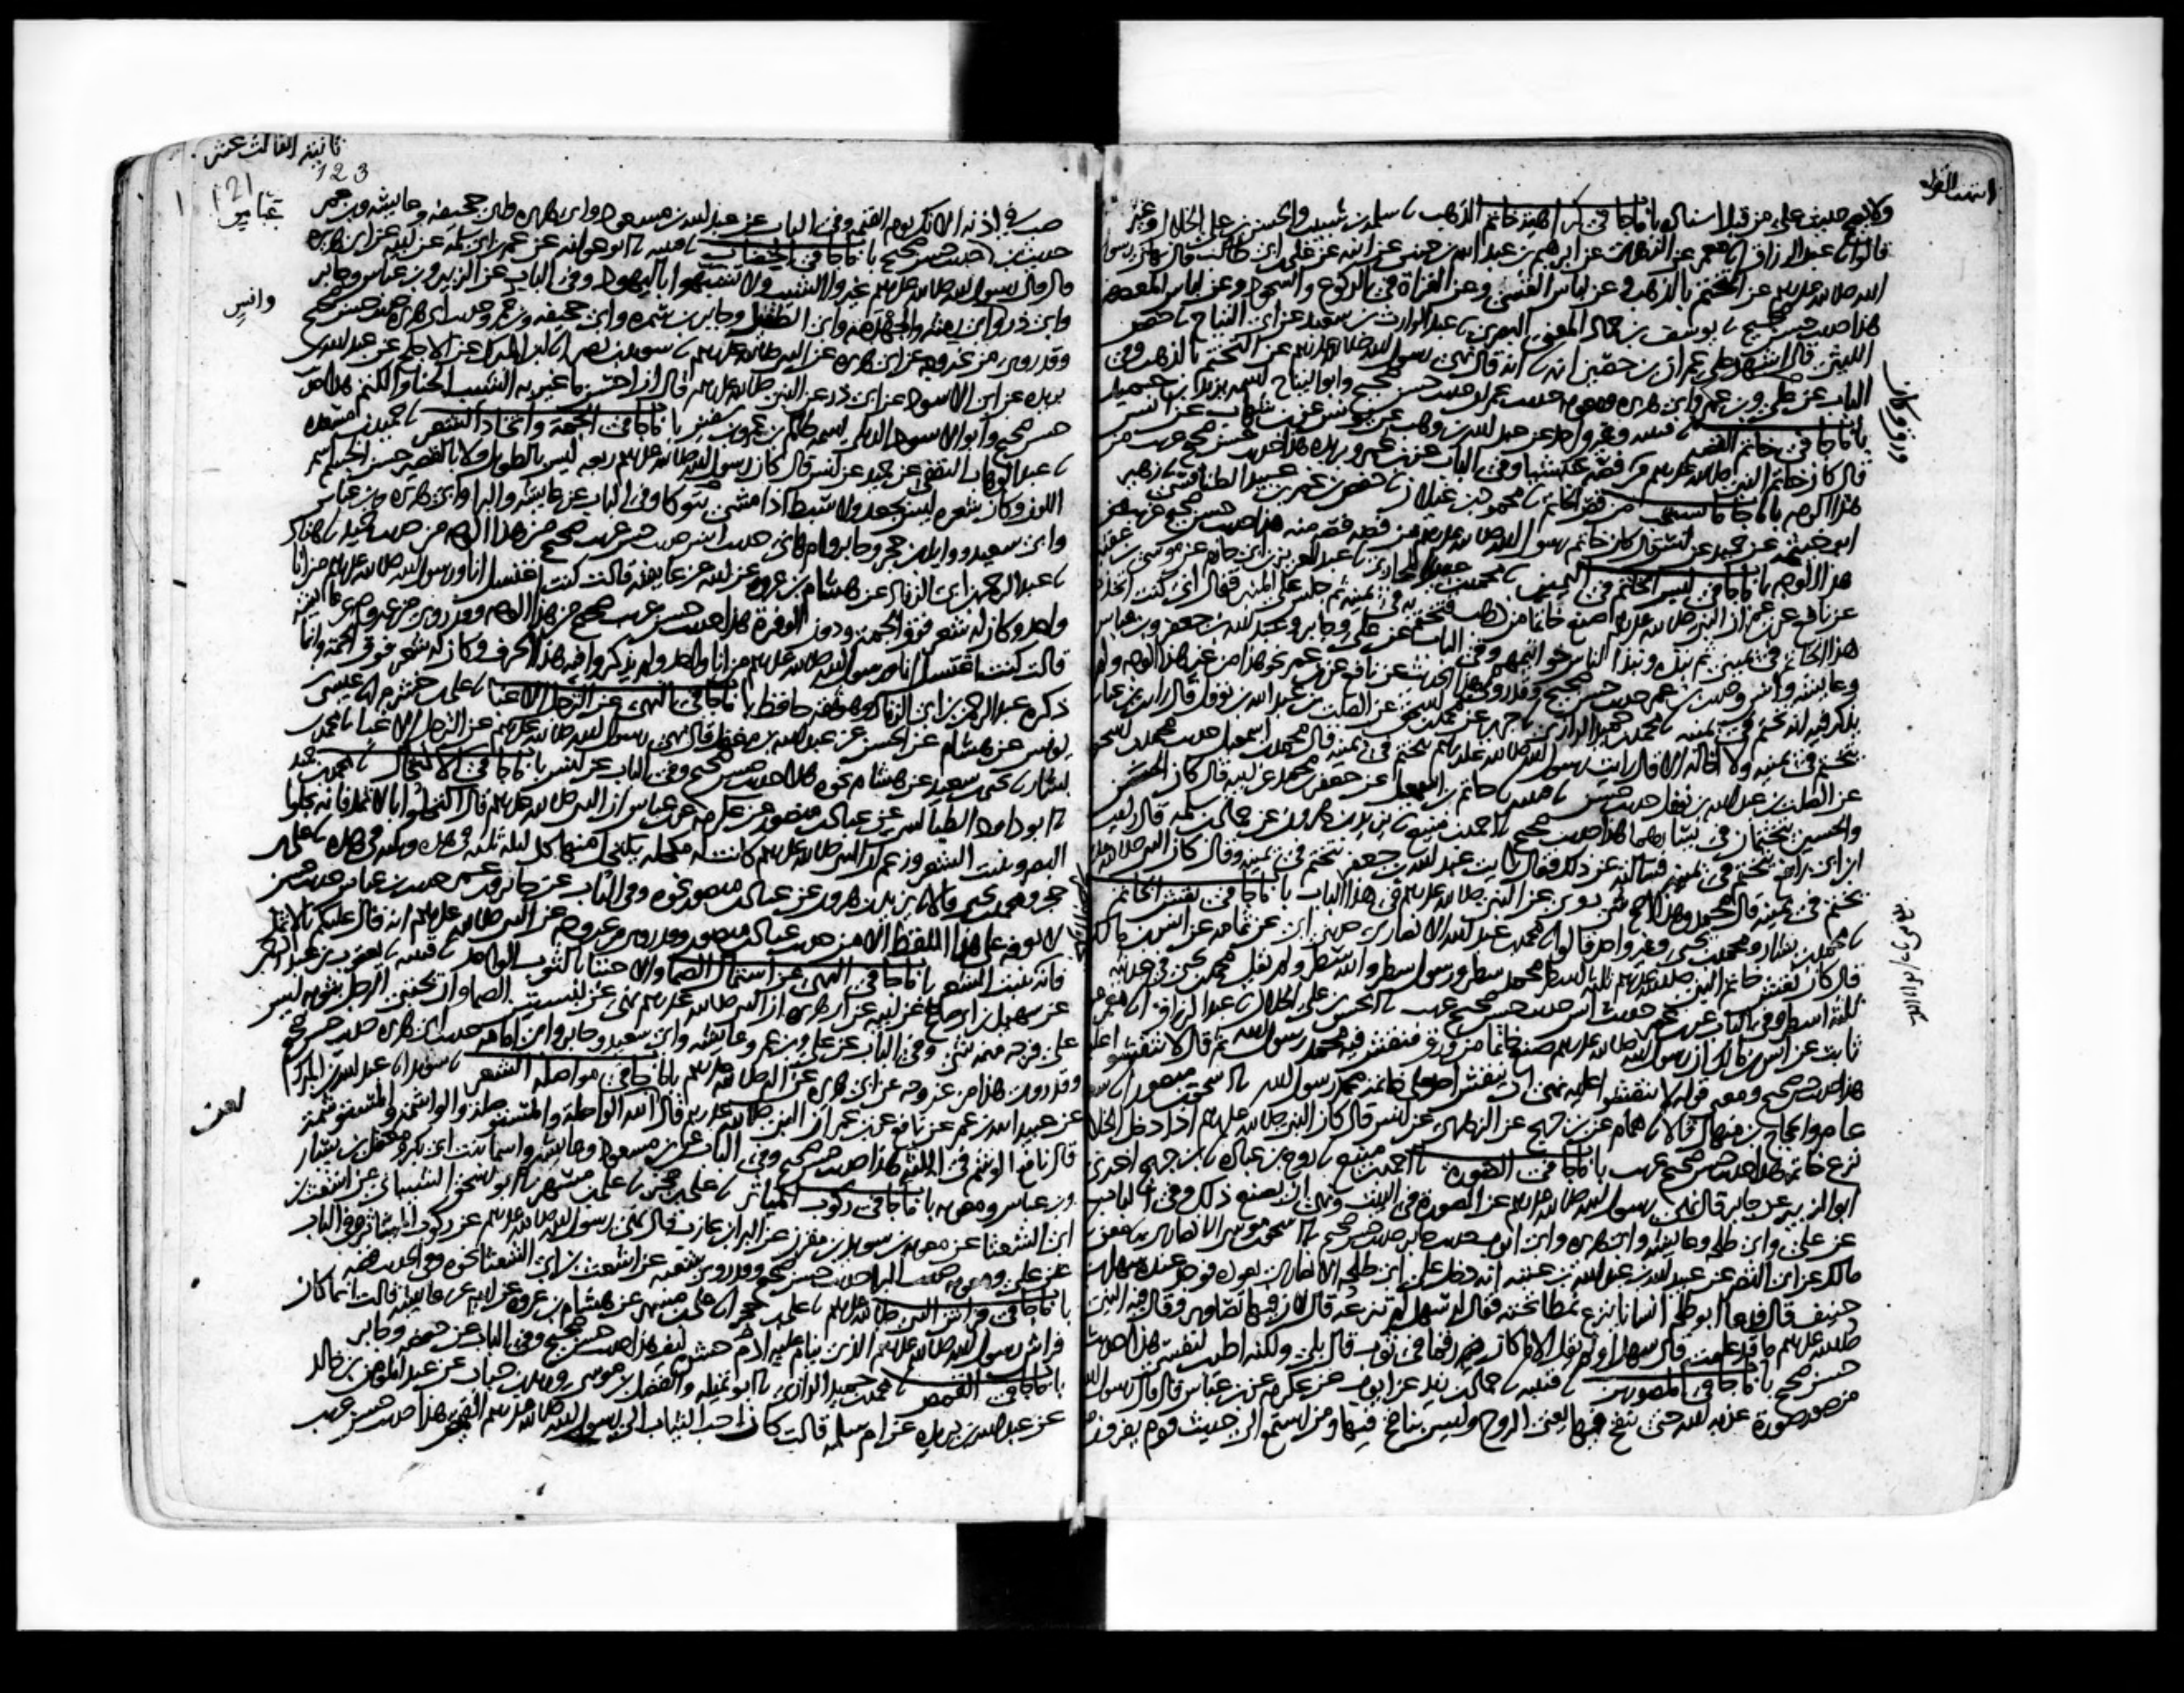 ولا يصح حديث علي من قبل اسناده باب ما جا في كراهية خاتم الذهب سلمة بن شبيب والحسن بن علي الخلال وغير
قالوا عبد الرزاق معمر عن الزهري عن ابرهيم بن عبد الله بن حنين عن ابيه عن علي بن ابي طالب قال نهاني رسول
الله صلى الله عليه وسلم عن التختم بالذهب وعن لباس القسي وعن القراة في الركوع والسجود وعن لباس المعصفر
هذا حديث حسن صحيح يوسف بن حماد المعني البصري عبد الوارث بن سعيد عن ابي التياح حفص
الليثي قال اشهد على عمران بن حصين انه قال نهى رسول الله صلى الله عليه وسلم عن التختم بالذهب وفي
الباب عن علي وبن عمر وابي هريرة ومعوية حديث عمران حديث حسن صحيح وابو التياح اسمه يزيد بن حميد
باب ما جا في خاتم الفضة قتيبة وغير واحد عن عبد الله بن وهب عن يونس عن بن شهاب عن انس
قال كان خاتم النبي صلى الله عليه وسلم من فضة حبشيا وفي الباب عن بن عمر وبريدة هذا حديث حسن صحيح غريب من
هذا الوجه باب ما جا ما يستحب من فص الخاتم محمود بن غيلان حفص بن عمر بن عبيد الطنافسي زهير
ابو خيثمة عن حميد عن انس قال كان خاتم رسول الله صلى الله عليه وسلم من فضة فصه منه هذا حديث حسن صحيح غريب من
هذا الوجه باب ما جا في لبس الخاتم في اليمين محمد بن عبيد المحاربي عبد العزيز بن ابي حازم عن موسى بن عقبة
عن نافع عن بن عمر ان النبي صلى الله عليه وسلم صنع خاتما من ذهب فتختم به في يمينه ثم جلس على المنبر فقال اني كنت اتخذت
هذا الخاتم في يميني ثم نبذه ونبذ الناس خواتيمهم وفي الباب عن علي وجابر وعبد الله بن جعفر وبن عباس
وعايشة وانس وحديث بن عمر حديث حسن صحيح وقد روي هذا الحديث عن نافع عن بن عمر نحو هذا من غير هذا الوجه ولم
يذكر فيه انه تختم في يمينه محمد بن حميد الرازي جرير عن محمد بن اسحق عن الصلت بن عبد الله بن نوفل قال رايت بن عباس
يتختم في يمينه ولا اخاله الا قال رايت رسول الله صلى الله عليه وسلم يتختم في يمينه قال محمد بن اسمعيل حديث محمد بن اسحق
عن الصلت بن عبد الله بن نوفل حديث حسن قتيبة حاتم بن اسمعيل عن جعفر بن محمد عن ابيه قال كان الحسن
والحسين يتختمان في يسارهما هذا حديث صحيح احمد بن منيع يزيد بن هرون عن حماد بن سلمة قال رايت
ابن ابي رافع يتختم في يمينه فسالته عن ذلك فقال رايت عبد الله بن جعفر يتختم في يمينه وقال كان النبي صلى الله عليه وسلم
يتختم في يمينه قال محمد وهذا اصح شي روي عن النبي صلى الله عليه وسلم في هذا الباب باب ما جا في نقش الخاتم
محمد بن بشار ومحمد بن يحيى وغير واحد قالوا محمد بن عبد الله الانصاري حدثني ابي عن ثمامة عن انس بن مالك
قال كان نقش خاتم النبي صلى الله عليه وسلم ثلثة اسطر محمد سطر ورسول سطر والله سطر ولم يقل محمد بن يحيى في حديثه
ثلثة اسطر وفي الباب عن بن عمر حديث انس حديث حسن صحيح غريب الحسن بن علي الخلال عبد الرزاق معمر
ثابت عن انس بن مالك ان رسول الله صلى الله عليه وسلم صنع خاتما من ورق فنقش فيه محمد رسول الله ثم قال لا تنقشوا عليه
هذا حديث صحيح ومعنى قوله لا تنقشوا عليه نهى ان ينقش احد على خاتمه محمد رسول الله اسحق بن منصور سعيد بن
عامر والحجاج بن منهال قالا همام عن بن جريج عن الزهري عن انس قال كان النبي صلى الله عليه وسلم اذا دخل الخلا
نزع خاتمه هذا حديث حسن صحيح غريب باب ما جا في الصورة احمد بن منيع روح بن عبادة بن جريج اخبرني
ابو الزبير عن جابر قال نهى رسول الله صلى الله عليه وسلم عن الصورة في البيت ونهى ان يصنع ذلك وفي الباب
عن علي وابي طلحة وعايشة وابي هريرة وابي ايوب حديث جابر حديث حسن صحيح اسحق بن موسى الانصاري معن
مالك عن ابي النضر عن عبيد الله بن عبد الله بن عتبة انه دخل على ابي طلحة الانصاري يعوده فوجد عنده سهل بن
حنيف قال فدعا ابو طلحة انسانا ينزع نمطا تحته فقال له سهل لم تنزعه قال لان فيها تصاوير وقال فيه النبي
صلى الله عليه وسلم ما قد علمت قال سهل اولم يقل الا ما كان رقما في ثوب قال بلى ولكنه اطيب لنفسي هذا حديث
حسن صحيح باب ما جا في المصورين قتيبة حماد بن زيد عن ايوب عن عكرمة عن بن عباس قال قال رسول الله
من صور صورة عذبه الله حتى ينفخ فيها يعني الروح وليس بنافخ فيها ومن استمع الى حديث قوم يفرون
ثانية الثالث عشر
123
121
صب في اذنه الانك يوم القيمة وفي الباب عن عبد الله بن مسعود وابي هريرة وابي جحيفة وعايشة وبن عمر
حديث بن عباس حديث حسن صحيح باب ما جا في الخضاب قتيبة ابو عوانة عن عمر بن ابي سلمة عن ابيه عن ابي هريرة
قال قال رسول الله صلى الله عليه وسلم غيروا الشيب ولا تشبهوا باليهود وفي الباب عن الزبير وبن عباس وجابر
وابي ذر وابي رمثة والجهدمة وابي الطفيل وجابر بن سمرة وابي جحيفة وبن عمر وحديث ابي هريرة حديث حسن صحيح
وقد روي من غير وجه عن ابي هريرة عن النبي صلى الله عليه وسلم سويد بن نصر ابن المبارك عن الاجلح عن عبد الله بن
بريدة عن ابي الاسود عن ابي ذر عن النبي صلى الله عليه وسلم قال ان احسن ما غير به الشيب الحنا والكتم هذا حديث
حسن صحيح وابو الاسود الديلي اسمه ظالم بن عمرو بن سفين باب ما جا في الجمة واتخاذ الشعر حميد بن مسعدة
عبد الوهاب الثقفي عن حميد عن انس قال كان رسول الله صلى الله عليه وسلم ربعة ليس بالطويل ولا بالقصير حسن الجسم اسمر
اللون وكان شعره ليس بجعد ولا سبط اذا مشى يتوكا وفي الباب عن عايشة والبرا وابي هريرة وبن عباس
وابي سعيد ووايل بن حجر وجابر وام هاني حديث انس حديث حسن غريب صحيح من هذا الوجه من حديث حميد هناد
عبد الرحمن بن ابي الزناد عن هشام بن عروة عن ابيه عن عايشة قالت كنت اغتسل انا ورسول الله صلى الله عليه وسلم من انا
واحد وكان له شعر فوق الجمة ودون الوفرة هذا حديث حسن غريب صحيح من هذا الوجه وقد روي من غير وجه عن عايشة
قالت كنت اغتسل انا ورسول الله صلى الله عليه وسلم من انا واحد ولم يذكروا فيه هذا الحرف وكان له شعر فوق الجمة وانما
ذكره عبد الرحمن بن ابي الزناد وهو ثقة حافظ باب ما جا في النهي عن الترجل الا غبا علي بن خشرم عيسى بن
يونس عن هشام عن الحسن عن عبد الله بن مغفل قال نهى رسول الله صلى الله عليه وسلم عن الترجل الا غبا محمد بن
بشار يحيى بن سعيد عن هشام نحوه هذا حديث حسن صحيح وفي الباب عن انس باب ما جا في الاكتحال محمد بن حميد
ابو داود الطيالسي عن عباد بن منصور عن عكرمة عن بن عباس ان النبي صلى الله عليه وسلم قال اكتحلوا بالاثمد فانه يجلوا
البصر وينبت الشعر وزعم ان النبي صلى الله عليه وسلم كانت له مكحلة يكتحل منها كل ليلة ثلثة في هذه وثلثة في هذه علي بن
حجر ومحمد بن يحيى قالا يزيد بن هرون عن عباد بن منصور نحوه وفي الباب عن جابر وبن عمر حديث بن عباس حديث حسن
لا نعرفه على هذا اللفظ الا من حديث عباد بن منصور وقد روي من غير وجه عن النبي صلى الله عليه وسلم انه قال عليكم بالاثمد
فانه ينبت الشعر باب ما جا في النهي عن اشتمال الصما والاحتبا بالثوب الواحد قتيبة يعقوب بن عبد الرحمن
عن سهيل بن ابي صالح عن ابيه عن ابي هريرة ان النبي صلى الله عليه وسلم نهى عن لبستين الصما وان يحتبي الرجل بثوبه ليس
على فرجه منه شي وفي الباب عن علي وبن عمر وعايشة وابي سعيد وجابر وابي امامة حديث ابي هريرة حديث حسن صحيح
وقد روي هذا من غير وجه عن ابي هريرة عن النبي صلى الله عليه وسلم باب ما جا في مواصلة الشعر سويد عبد الله بن المبارك
عن عبيد الله بن عمر عن نافع عن بن عمر ان النبي صلى الله عليه وسلم قال لعن الله الواصلة والمستوصلة والواشمة والمستوشمة
قال نافع الوشم في اللثة هذا حديث حسن صحيح وفي الباب عن بن مسعود وعايشة واسما بنت ابي بكر ومعقل بن يسار
وبن عباس ومعوية باب ما جا في ركوب المياثر علي بن حجر علي بن مسهر ابو اسحق الشيباني عن اشعث بن
ابي الشعثا عن معوية بن سويد بن مقرن عن البرا بن عازب قال نهى رسول الله صلى الله عليه وسلم عن ركوب المياثر وفي الباب
عن علي ومعوية حديث البرا حديث حسن صحيح وقد روي شعبة عن اشعث بن ابي الشعثا نحوه وفي الحديث قصة
باب ما جا في فراش النبي صلى الله عليه وسلم علي بن حجر علي بن مسهر عن هشام بن عروة عن ابيه عن عايشة قالت انما كان
فراش رسول الله صلى الله عليه وسلم الذي ينام عليه ادم حشوه ليف هذا حديث حسن صحيح وفي الباب عن حفصة وجابر
باب ما جا في القمص محمد بن حميد الرازي ابو تميلة والفضل بن موسى وزيد بن حباب عن عبد المومن بن خالد
عن عبد الله بن بريدة عن ام سلمة قالت كان احب الثياب الى رسول الله صلى الله عليه وسلم القميص هذا حديث حسن غريب
وانس
لعن